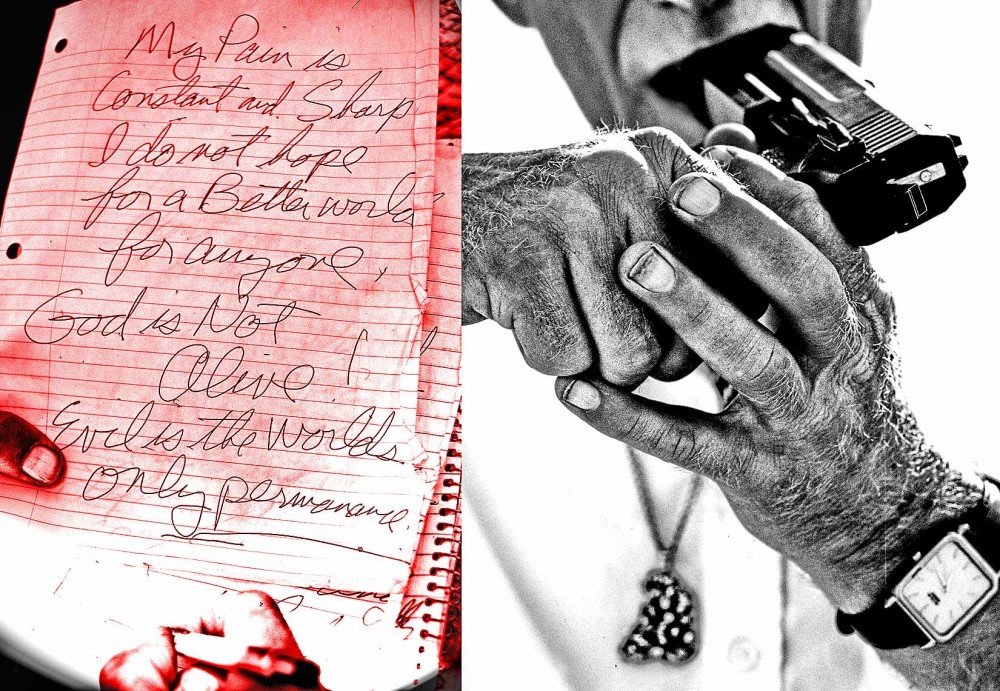 My Pain is
Constant and Sharp
I do not hope
for a Better world
for anyone,
God is Not
Alive
Evil is the Worlds
only permanance.